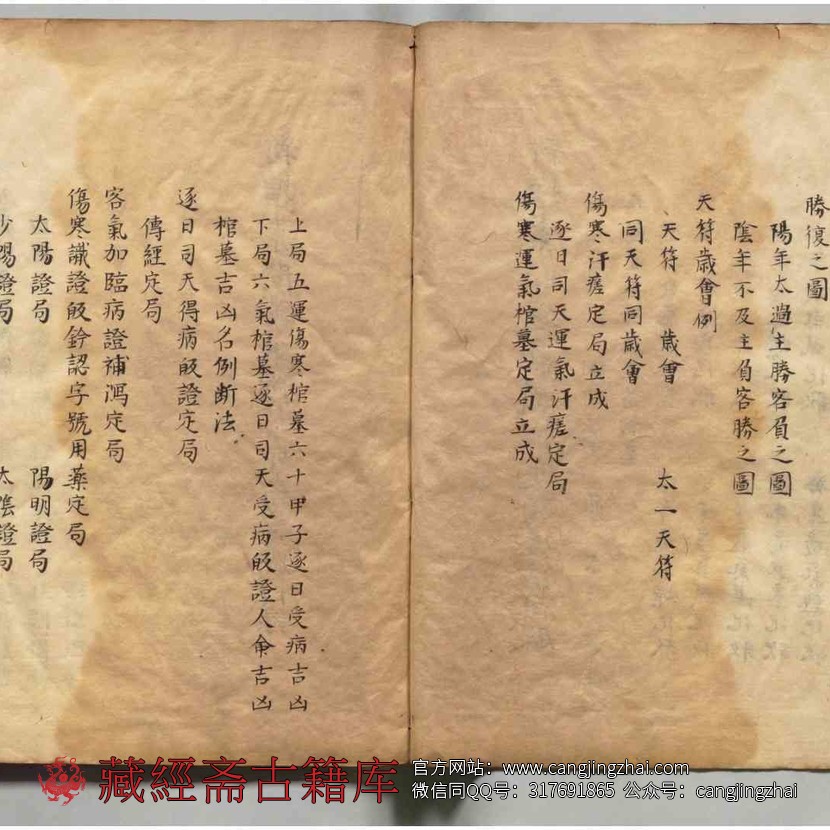 勝復之圖
陽年太過主勝客負之圖
陰年不及主負客勝之圖
天符歲會例
天符 歲會 太一天符
同天符同歲會
傷寒汗瘥定局立成
逐日司天運氣汗瘥定局
傷寒運氣棺墓定局立成
上局五運傷寒棺墓六十甲子逐日受病吉凶
下局六氣棺墓逐日司天受病㕁證人命吉凶
棺墓吉凶名例断法
逐日司天得病㕁證定局
傳經定局
客氣加臨病證補瀉定局
傷寒識證㕁鈐認字號用藥定局
太陽證局 陽明證局
少陽證局 太陰證局
藏經斋古籍库
官方网站：www.cangjingzhai.com
微信同QQ号：317691865 公众号：cangjingzhai